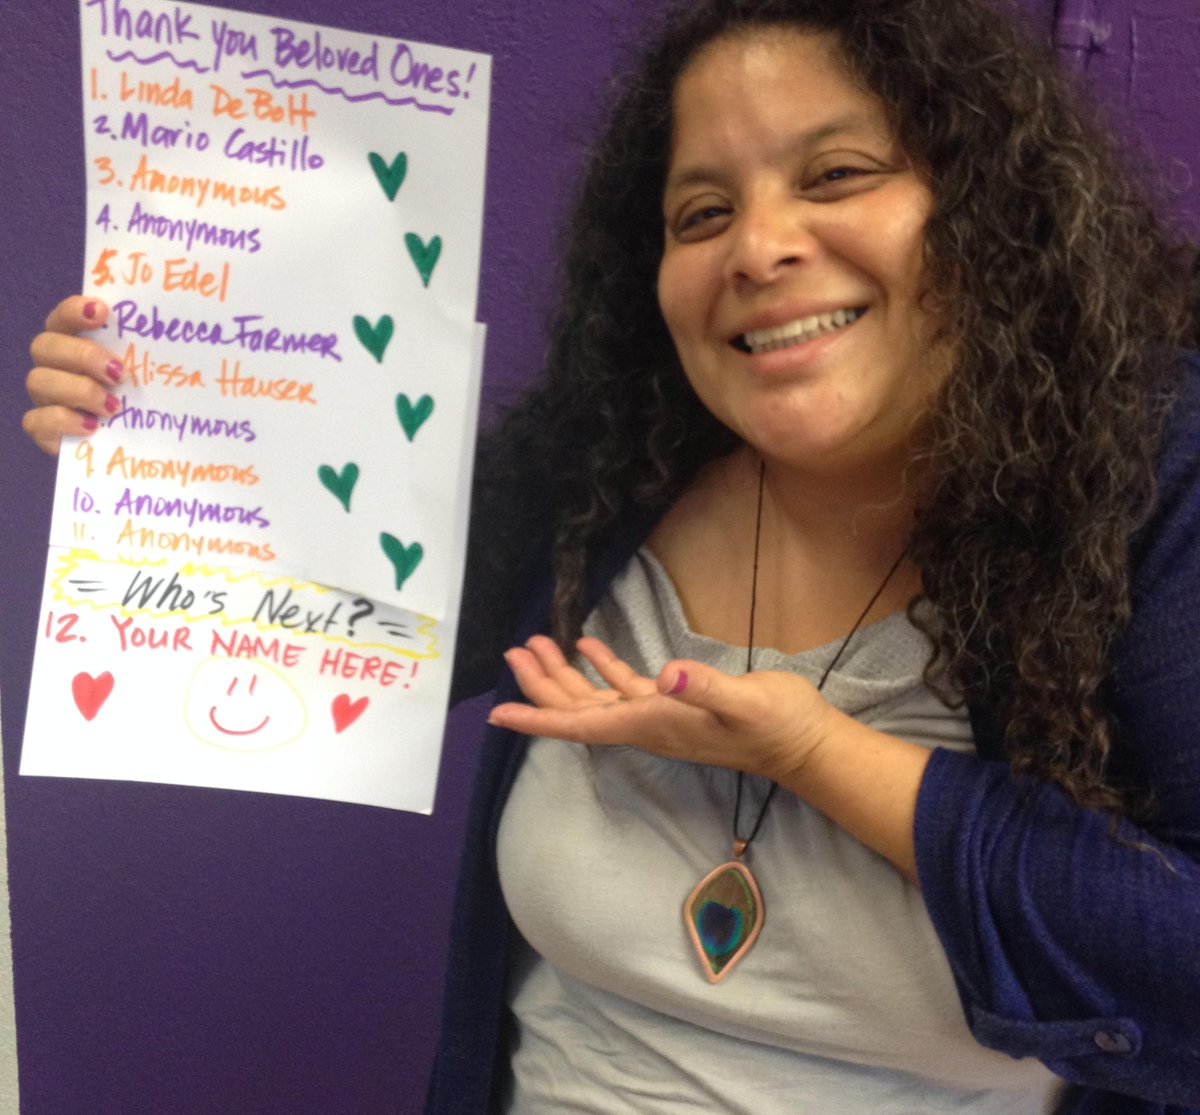 Thank you Beloved Ones!
1. Linda DeBolt
2. Mario Castillo
3. Anonymous
4. Anonymous
5. Jo Edel
Rebecca Farmer
Alissa Hauser
Anonymous
9. Anonymous
10. Anonymous
11. Anonymous
= Who's Next? =
12. YOUR NAME HERE!